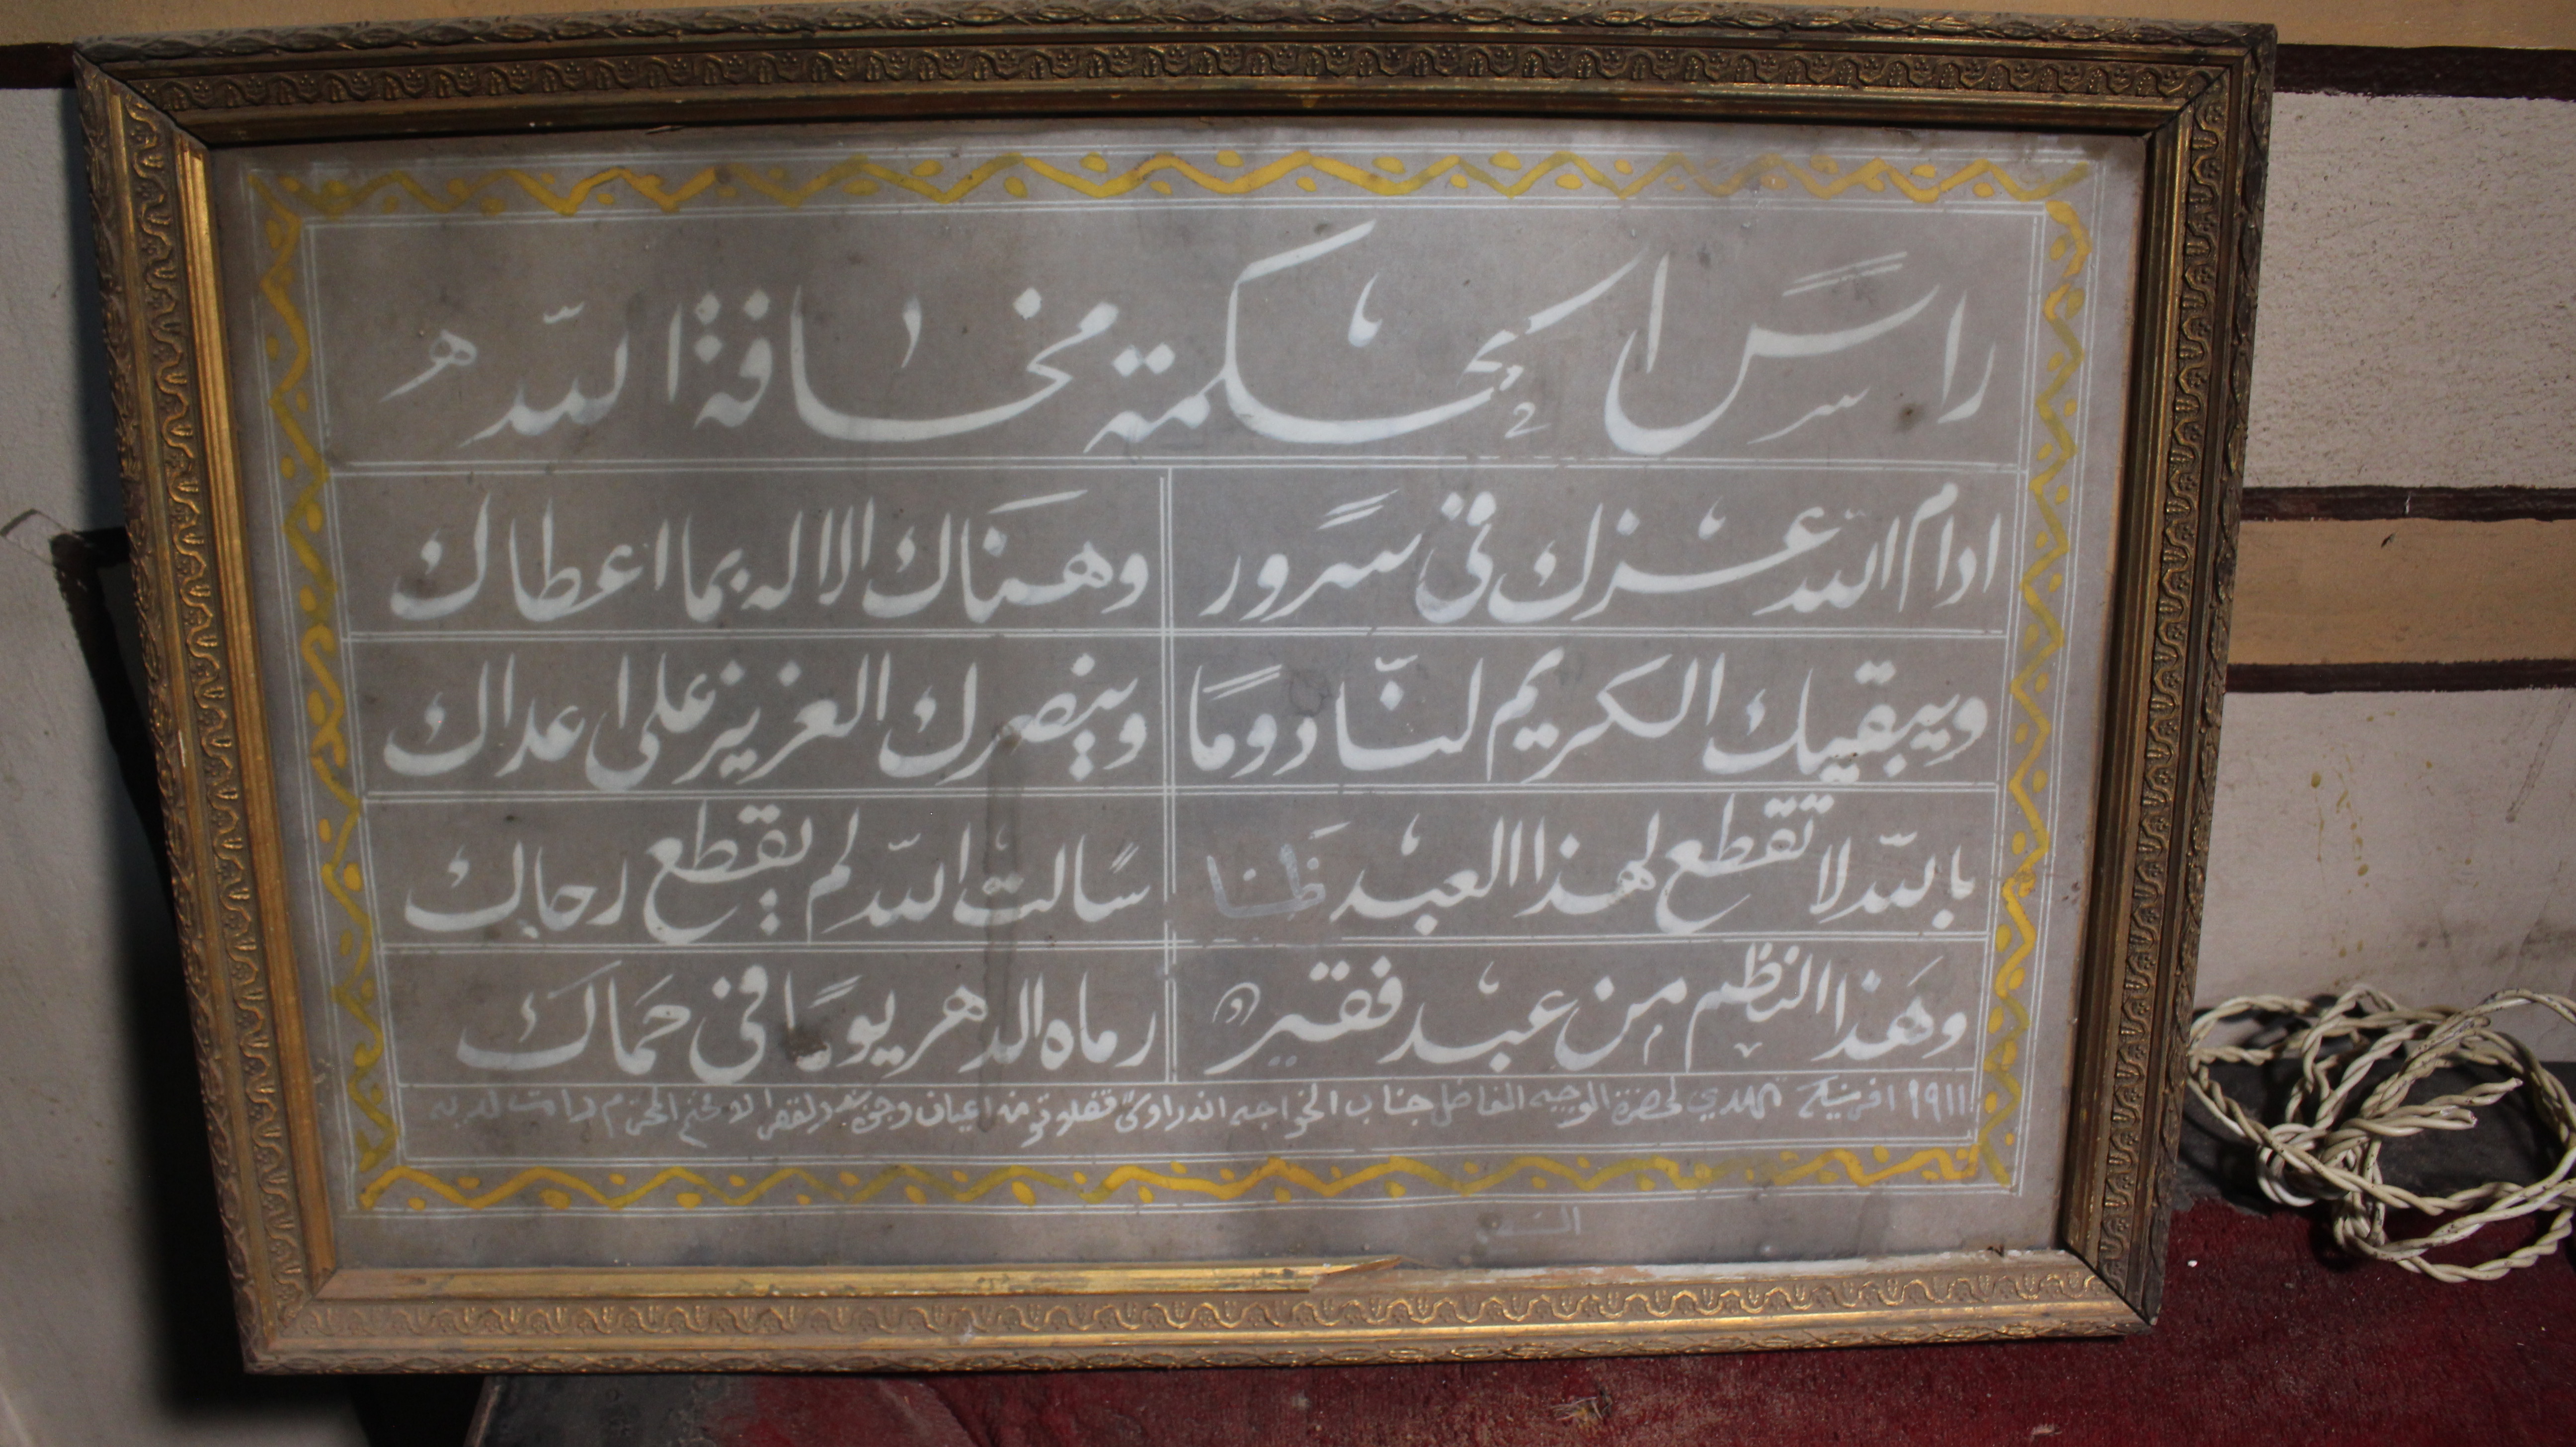 راسَ الحكمة مخافة الله
ادام الله عزك في سرور وهناك الاله بما اعطاك
ويبقيك الكريم لنا دومًا وينصرك العزيز على اعداك
بالله لا تقطع لهذا العبد ظنا سالت الله لم يقطع رجاك
وهَذا النظم من عبد فقير رماه الدهر يومًا في حمَاك
١٩١١ افرنكي تهدي لحضرة الوجيه الفاضل جناب الخواجه اندراوس قفلوتو من اعيان الافخم المحترم دامت